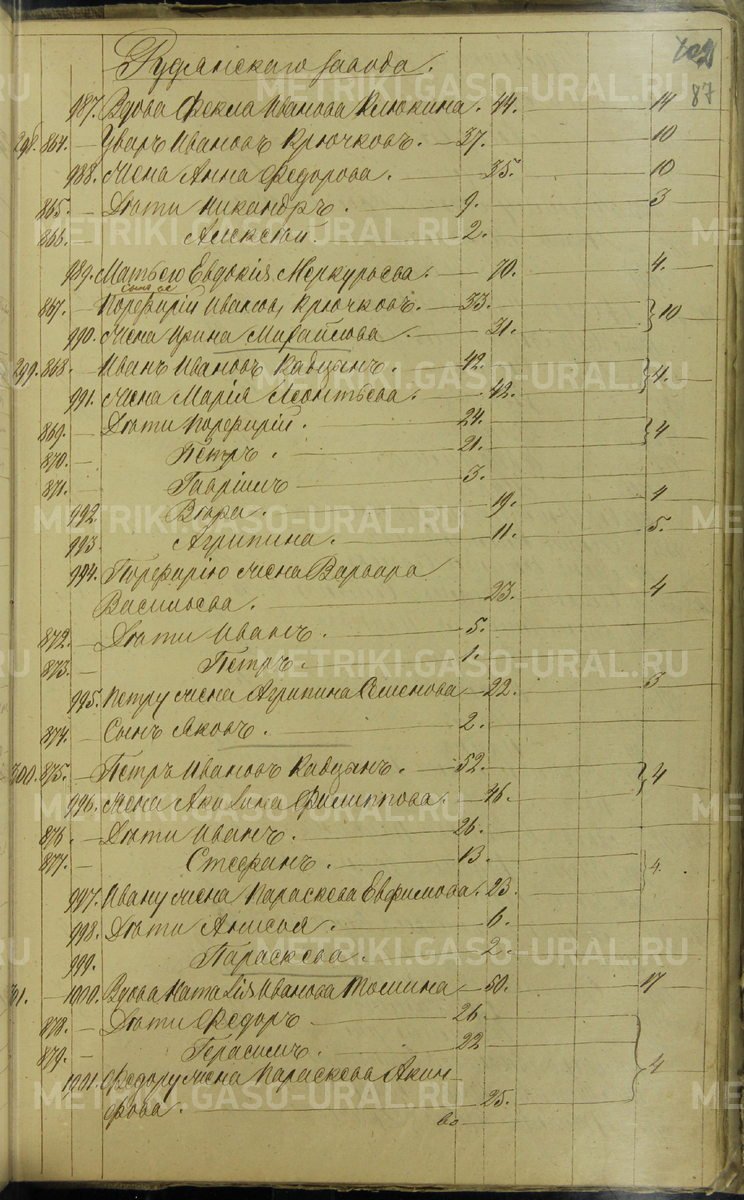 Рудянскаго завода.
87
987. Вдова Фекла Иванова Клюкина. 44. 14
298. 864. Уваръ Ивановъ Крючковъ. 37. 10
988. Жена Анна Федорова. 35. 10
865. Дѣти Никандръ. 9. 3
866. Алексѣй. 2.
989. Мать его Евдокія Меркурьева. 70. 4.
сынъ ея
867. Порфирій Ивановъ Крючковъ. 33. 10
990. Жена Ирина Михайлова. 31.
299. 868. Иванъ Ивановъ Кавцанъ. 42. 4.
991. Жена Марія Леонтьева. 42.
869. Дѣти Порфирій. 24. 4
870. Петръ. 21.
871. Гавріилъ 3.
992. Вѣра. 19. 4
993. Агрипина. 11. 5.
994. Порфирію жена Варвара
Васильева. 23. 4
872. Дѣти Иванъ. 5.
873. Петръ. 1.
995. Петру жена Агрипина Семенова 22. 3
874. Сынъ Яковъ. 2.
300. 875. Петръ Ивановъ Кавцанъ. 52. 4
996. Жена Акилина Филиппова. 46.
876. Дѣти Иванъ. 26.
877. Стефанъ. 13. 4.
997. Ивану жена Параскева Евфимова. 23.
998. Дѣти Анисья. 6.
999. Параскева. 2.
301. 1000. Вдова Наталія Иванова Томина 50. 17
878. Дѣти Федоръ 26.
879. Герасимъ. 22
1001. Федору жена Параскева Акин 4
фова. 25.
METRIKI.GASO-URAL.RU